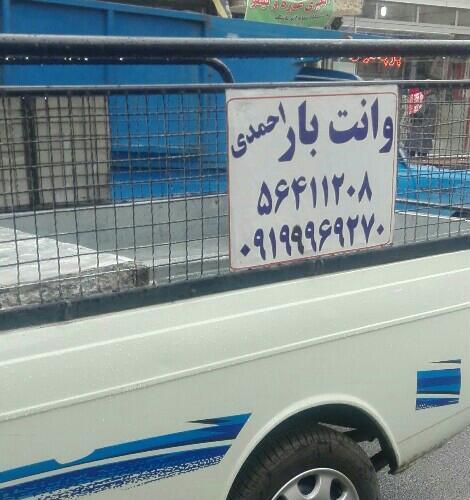 وانت بار احمدی
۵۶۴۱۱۲۰۸
۰۹۱۹۹۹۶۹۲۷۰